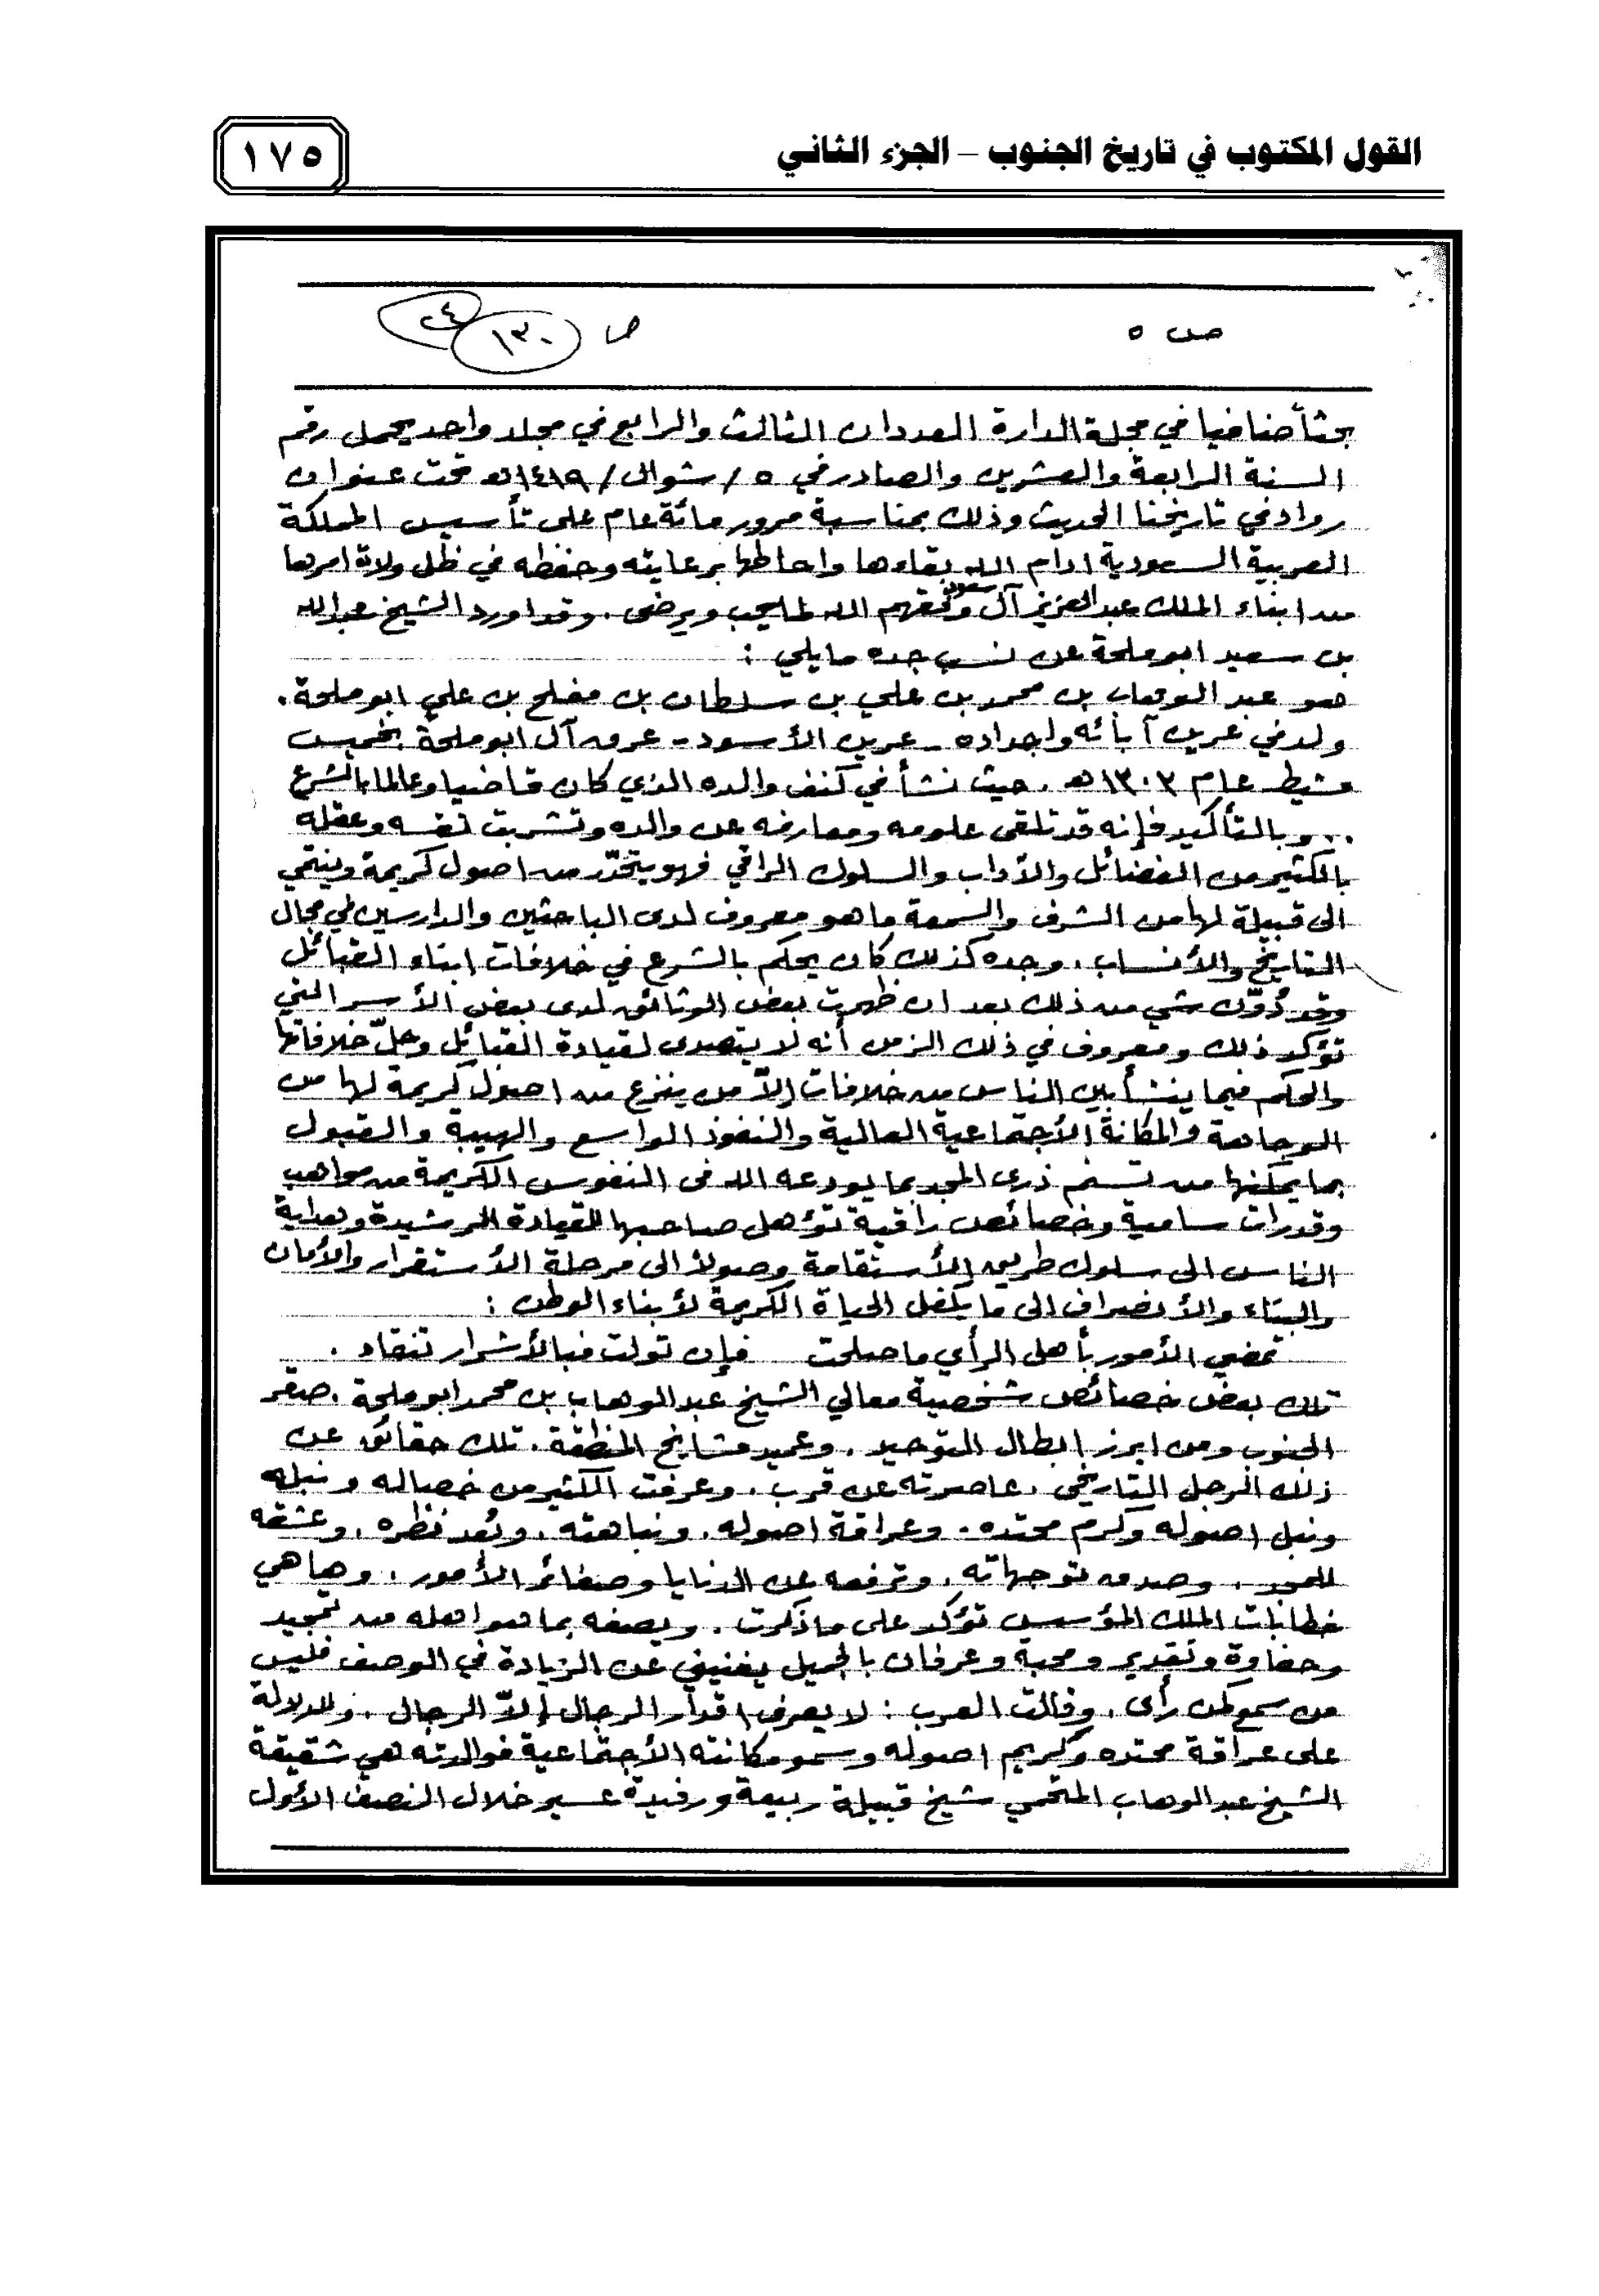 القول المكتوب في تاريخ الجنوب – الجزء الثاني
١٧٥
ص ٥
ص ١٣٠
٢٤
بحثاً ضافيا في مجلة الدارة العددان الثالث والرابع في مجلد واحد يحمل رقم
السنة الرابعة والعشرين والصادر في ٥ / شوال / ١٤١٩هـ تحت عنوان
رواد في تاريخنا الحديث وذلك بمناسبة مرور مائة عام على تأسيس المملكة
العربية السعودية ادام الله بقاءها واحاطها برعايته وحفظه في ظل ولاة امرها
من ابناء الملك عبدالعزيز آل سعود وفقهم الله لما يحب ويرضى . وقد اورد الشيخ عبدالله
بن سعيد ابو ملحة عن نسب جده ما يلي :
هو عبد الوهاب بن محمد بن علي بن سلطان بن مفلح بن علي ابو ملحة .
ولد في عرين آبائه واجداده - عرين الأسود - عرق آل ابو ملحة بخميس
مشيط عام ١٣٠٣هـ . حيث نشأ في كنف والده الذي كان قاضيا وعالما بالشرع
.. وبالتأكيد فإنه قد تلقى علومه ومعارفه عن والده وتشربت نفسه وعقله
بالكثير من الفضائل والآداب والسلوك الراقي فهو يتحدّر من اصول كريمة وينتمي
الى قبيلة لها من الشرف والسمعة ما هو معروف لدى الباحثين والدارسين في مجال
التاريخ والأنساب . وجده كذلك كان يحكم بالشرع في خلافات ابناء القبائل
وقد دُوّن شي من ذلك بعد ان ظهرت بعض الوثائق لدى بعض الأسر التي
تؤكد ذلك ومعروف في ذلك الزمن أنه لا يتصدى لقيادة القبائل وحلّ خلافاتها
والحكم فيما ينشأ بين الناس من خلافات إلاّ من ينزع من اصول كريمة لها من
الوجاهة والمكانة الأجتماعية العالية والنفوذ الواسع والهيبة والقبول
بما يمكنها من تسنم ذرى المجد بما يودعه الله فى النفوس الكريمة من مواهب
وقدرات سامية وخصائص راقية تؤهل صاحبها للقيادة الرشيدة وهداية
الناس الى سلوك طريق الأستقامة وصولاً الى مرحلة الأستقرار والأمان
والبناء والأنصراف الى ما يكفل الحياة الكريمة لأبناء الوطن :
تمضي الأمور بأهل الرأي ما صلحت     فإن تولت فبالأشرار تنقاد .
تلك بعض خصائص شخصية معالي الشيخ عبدالوهاب بن محمد ابو ملحة . صقر
الجنوب ومن ابرز ابطال التوحيد . وعميد مشايخ المنطقة . تلك حقائق عن
ذلك الرجل التاريخي . عاصرته عن قرب . وعرفت الكثير من خصاله ونبله
ونبل اصوله وكرم محتده . وعراقة اصوله . ونباهته . وبُعد نظره . وعشقه
للمجد . وصدق توجهاته . وترفعه عن الدنايا وصغائر الأمور . وها هي
خطابات الملك المؤسس تؤكد على ما ذكرت . ويصفه بما هو اهله من تمجيد
وحفاوة وتقدير ومحبة وعرفان بالجميل يغنيني عن الزيادة في الوصف فليس
من سمع كمن رأى . وقالت العرب : لا يعرف اقدار الرجال إلاّ الرجال . وللدلالة
على عراقة محتده وكريم اصوله وسمو مكانته الأجتماعية فوالدته هي شقيقة
الشيخ عبدالوهاب المتحمي شيخ قبيلة ربيعة ورفيدة عسير خلال النصف الأول